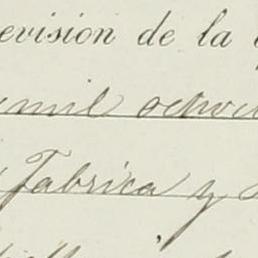 evision de la
mil ochoci
Fabrica y